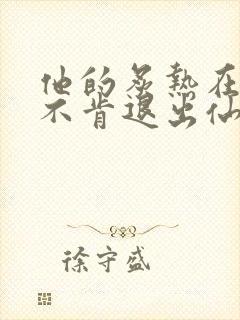 他的炙热在
不肯退出仙
徐守盛